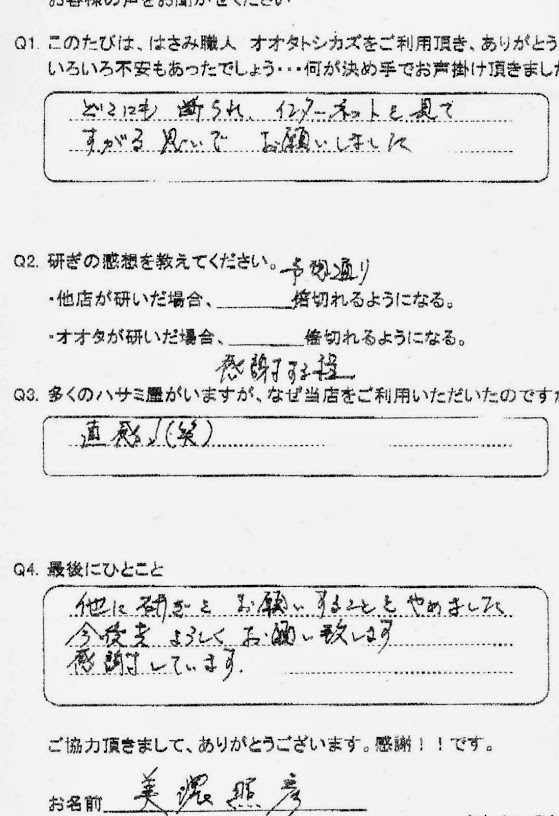 お客様の声をお聞かせください
Q1. このたびは、はさみ職人 オオタトシカズをご利用頂き、ありがとう
いろいろ不安もあったでしょう・・・何が決め手でお声掛け頂きました
どこにも 断られ、インターネットを見て
すがる思いで お願いしました
Q2. 研ぎの感想を教えてください。
予想通り
・他店が研いだ場合、______倍切れるようになる。
・オオタが研いだ場合、______倍切れるようになる。
感謝する程
Q3. 多くのハサミ屋がいますが、なぜ当店をご利用いただいたのですか
直感♪(笑)
Q4. 最後にひとこと
他に研ぎを お願いすることをやめました
今後共 よろしくお願い致します
感謝しています。
ご協力頂きまして、ありがとうございます。感謝！！です。
お名前 美濃 照彦